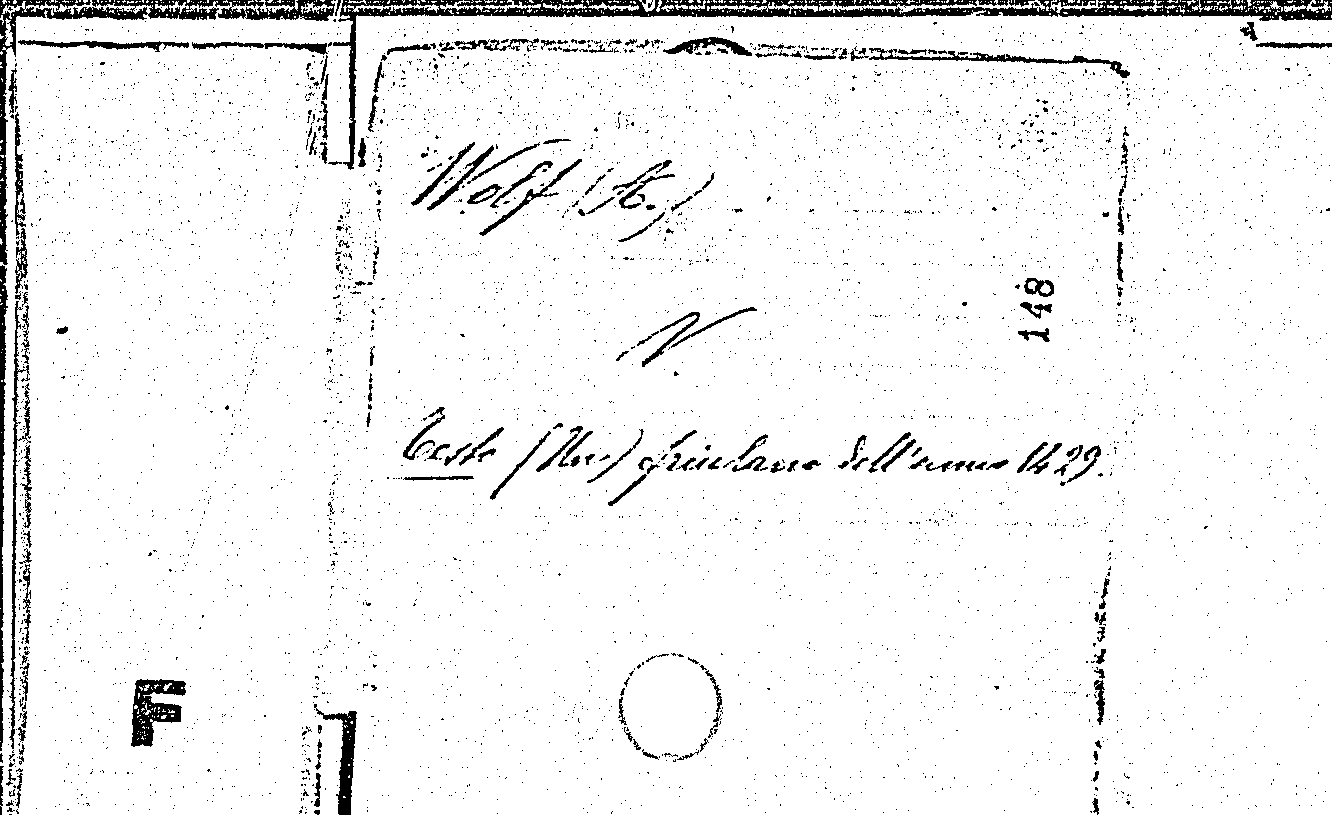 Wolf (A.)
V.
148
Testo (Un) friulano dell'anno 1429.
F